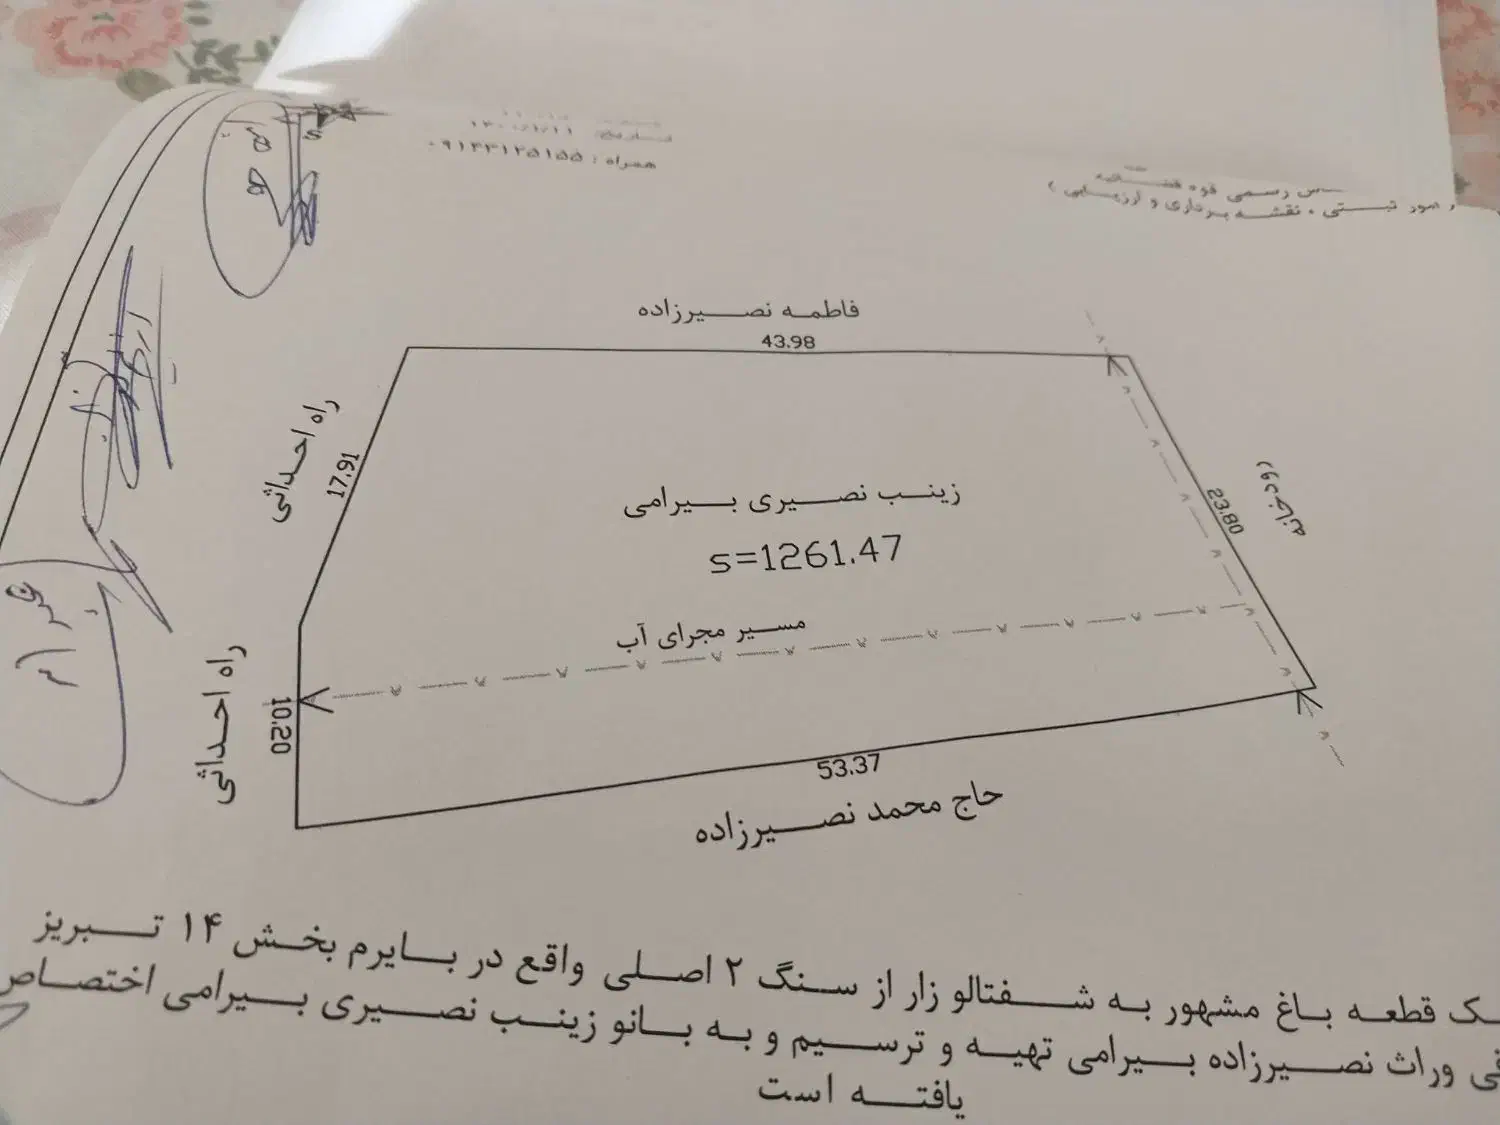 S
همراه : ۰۹۱۴۴۱۲۵۱۵۵
رسمی قوه
ثبتی ، نقشه برداری و ارزیابی
فاطمه نصیرزاده
43.98
راه احداثی
17.91
رودخانه
23.80
زینب نصیری بیرامی
s=1261.47
مسیر مجرای آب
راه احداثی
10.20
53.37
حاج محمد نصیرزاده
ک قطعه باغ مشهور به شفتالو زار از سنگ ۲ اصلی واقع در بایرم بخش ۱۴ تبریز
وراث نصیرزاده بیرامی تهیه و ترسیم و به بانو زینب نصیری بیرامی اختصاص
یافته است